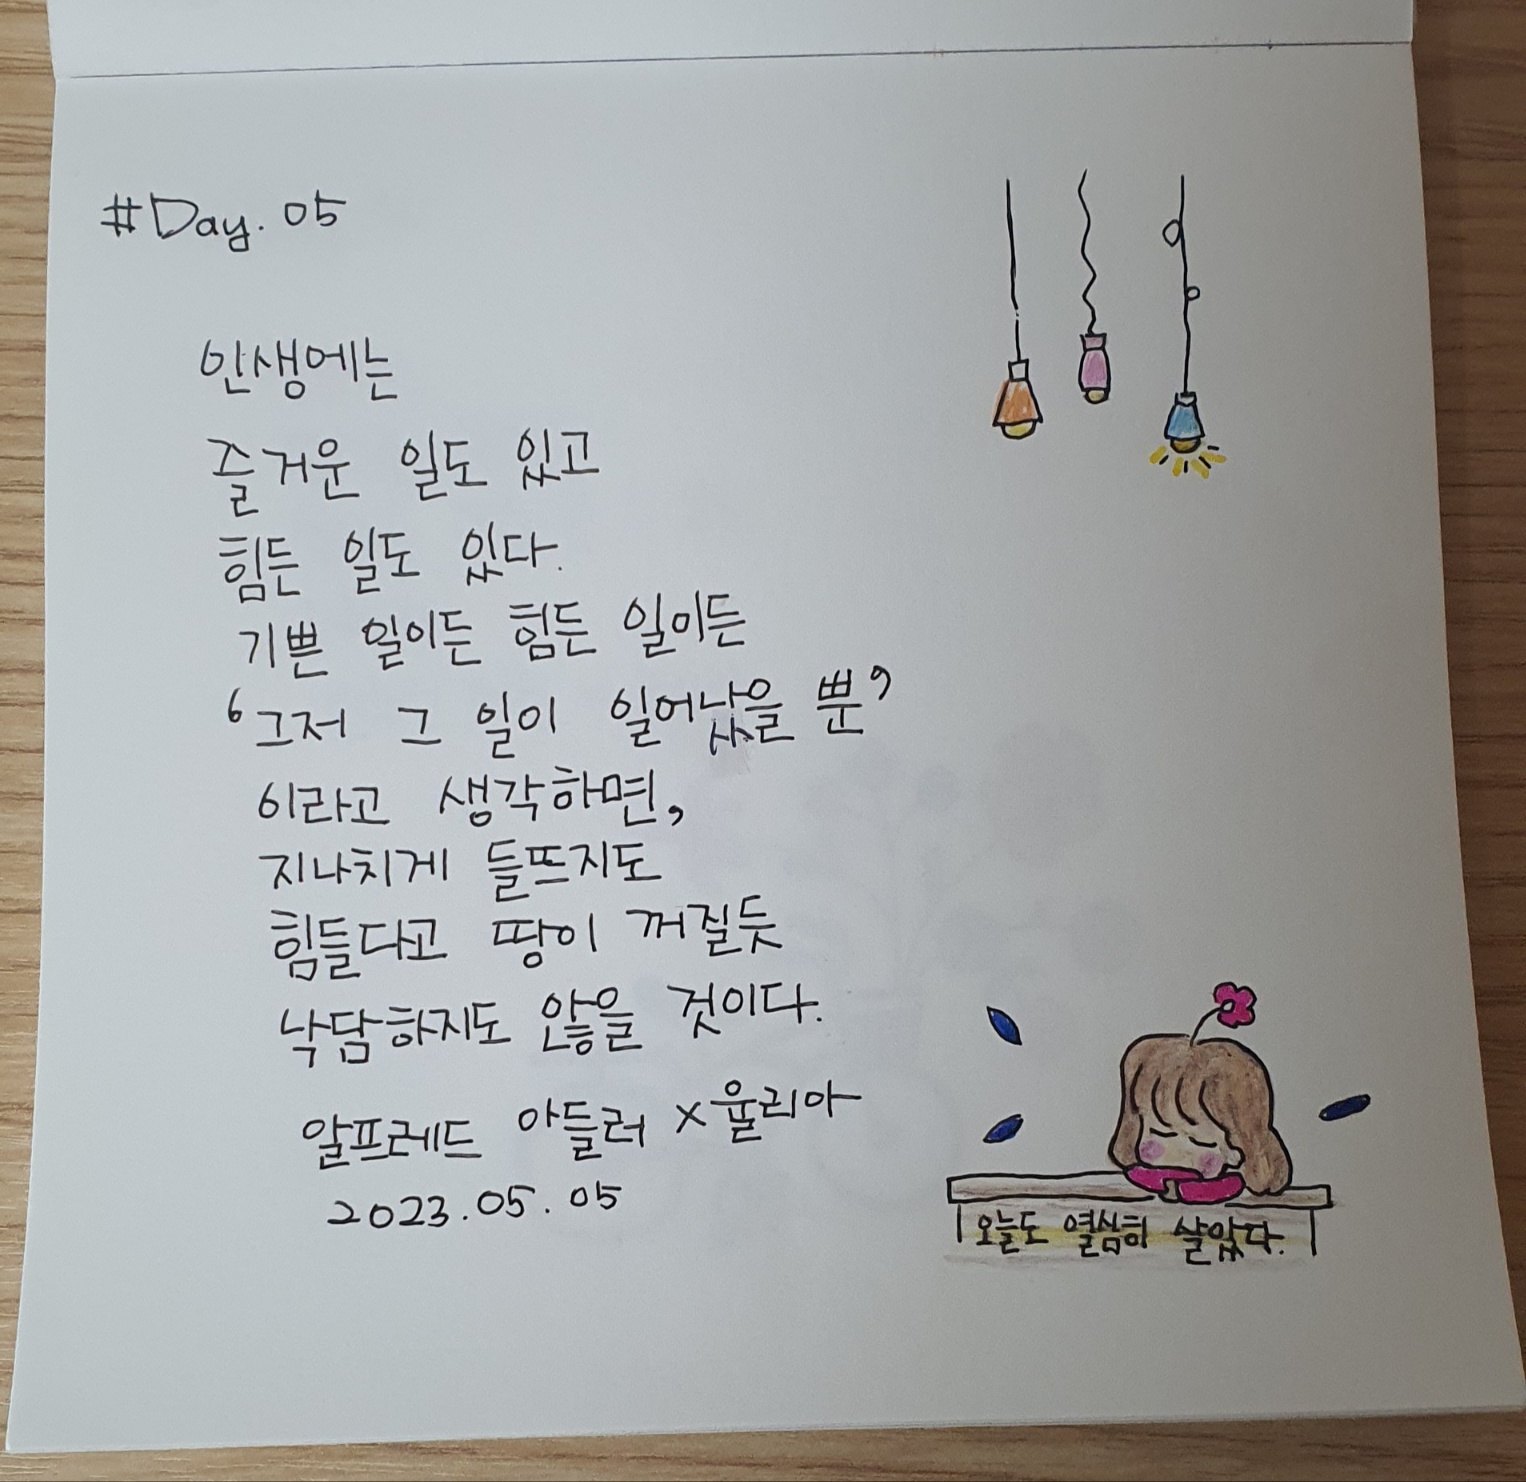 #Day. 05
인생에는
즐거운 일도 있고
힘든 일도 있다.
기쁜 일이든 힘든 일이든
‘그저 그 일이 일어났을 뿐’
이라고 생각하면,
지나치게 들뜨지도
힘들다고 땅이 꺼질듯
낙담하지도 않을 것이다.
알프레드 아들러 x 율리아
2023.05.05
오늘도 열심히 살았다.